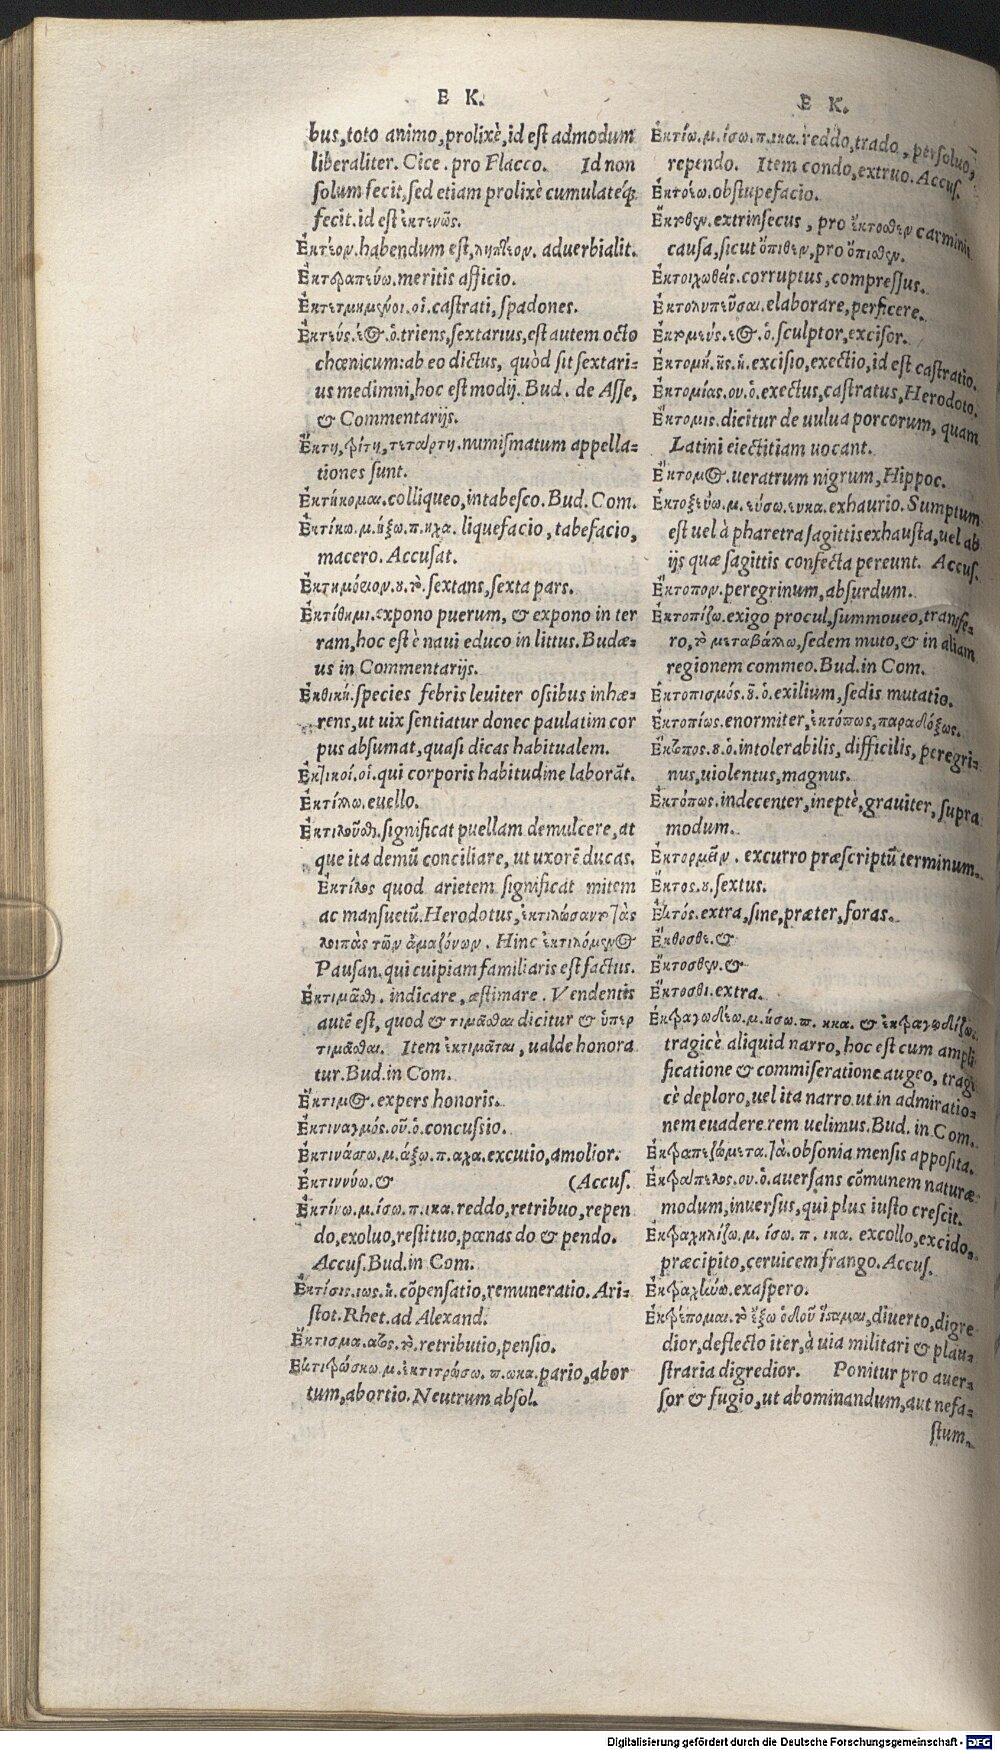 E K.
bus, toto animo, prolixè, id est admodum
liberaliter. Cice. pro Flacco. Id non
solum fecit, sed etiam prolixè cumulateq́ue
fecit. id est ἐκτενῶς.
Ἐκτέον. habendum est, ληπτέον. aduerbialit.
Ἐκτεραπεύω. meritis afficio.
Ἐκτετμημένοι. οἱ. castrati, spadones.
Ἐκτεύς. έος. ὁ. triens, sextarius, est autem octo
chœnicum: ab eo dictus, quòd sit sextari-
us medimni, hoc est modij. Bud. de Asse,
& Commentarijs.
Ἕκτη, τρίτη, τετάρτη. numismatum appella-
tiones sunt.
Ἐκτήκομαι. colliqueo, intabesco. Bud. Com.
Ἐκτίκω. μ. ήξω. π. ηχα. liquefacio, tabefacio,
macero. Accusat.
Ἑκτημόειον. ου. τὸ. sextans, sexta pars.
Ἐκτίθημι. expono puerum, & expono in ter
ram, hoc est è naui educo in littus. Budæ-
us in Commentarijs.
Ἑκθικὴ. species febris leuiter ossibus inhæ-
rens, ut uix sentiatur donec paulatim cor
pus absumat, quasi dicas habitualem.
Ἑκτικοί. οἱ. qui corporis habitudine laborãt.
Ἐκτίλλω. euello.
Ἐκτιλοῦσθαι. significat puellam demulcere, at
que ita demũ conciliare, ut uxorẽ ducas.
Ἐκτίλος quod arietem significat mitem
ac mansuetũ. Herodotus, ἐκτιλώσαντο τὰς
λοιπὰς τῶν ἀμαζόνων. Hinc ἐκτιλόμενος
Pausan. qui cuipiam familiaris est factus.
Ἐκτιμᾶσθαι. indicare, æstimare. Vendentis
autẽ est, quod & τιμᾶσθαι dicitur & ὑπερ
τιμᾶσθαι. Item ἐκτιμᾶται, ualde honora
tur. Bud. in Com.
Ἔκτιμος. expers honoris.
Ἐκτιναγμός. οῦ. ὁ. concussio.
Ἐκτινάσσω. μ. άξω. π. αχα. excutio, amolior.
Ἐκτιννύω. & (Accus.
Ἐκτίνω. μ. ίσω. π. ικα. reddo, retribuo, repen
do, exoluo, restituo, pœnas do & pendo.
Accus. Bud. in Com.
Ἔκτισις. ιως. ἡ. cõpensatio, remuneratio. Ari-
stot. Rhet. ad Alexand.
Ἔκτισμα. ατος. τὸ. retributio, pensio.
Ἐκτιτρώσκω. μ. ἐκτιτρώσω. π. ωκα. pario, abor
tum, abortio. Neutrum absol.
E K.
Ἐκτίω. μ. ίσω. π. ικα. reddo, trado, persoluo,
rependo. Item condo, extruo. Accus.
Ἐκτοέω. obstupefacio.
Ἔκτοθεν. extrinsecus, pro ἔκτοσθεν carminis
causa, sicut ὄπιθεν, pro ὄπισθεν.
Ἐκτοιχωθείς. corruptus, compressus.
Ἐκτολυπεῦσαι. elaborare, perficere.
Ἐκτομεύς. έος. ὁ. sculptor, excisor.
Ἐκτομή. ῆς. ἡ. excisio, exectio, id est castratio.
Ἐκτομίας. ου. ὁ. exectus, castratus, Herodoto.
Ἔκτομις. dicitur de uulua porcorum, quam
Latini eiectitiam uocant.
Ἔκτομος. ueratrum nigrum, Hippoc.
Ἐκτοξεύω. μ. εύσω. ευκα. exhaurio. Sumptum
est uel à pharetra sagittis exhausta, uel ab
ijs quæ sagittis confecta pereunt. Accus.
Ἔκτοπον. peregrinum, absurdum.
Ἐκτοπίζω. exigo procul, summoueo, transfe-
ro, τὸ μεταβάλλω, sedem muto, & in aliam
regionem commeo. Bud. in Com.
Ἐκτοπισμός. οῦ. ὁ. exilium, sedis mutatio.
Ἐκτοπίως. enormiter, ἐκτόπως, παραδόξως.
Ἔκτοπος. ου. ὁ. intolerabilis, difficilis, peregri-
nus, uiolentus, magnus.
Ἐκτόπως. indecenter, ineptè, grauiter, supra
modum.
Ἐκτορμεῖν. excurro præscriptũ terminum.
Ἕκτος. ου. sextus.
Ἐκτός. extra, sine, præter, foras.
Ἔκθοσθε. &
Ἔκτοσθεν. &
Ἔκτοσθι. extra.
Ἐκτραγωδέω. μ. ήσω. π. ηκα. & ἐκτραγωδίζω.
tragicè aliquid narro, hoc est cum ampli
ficatione & commiseratione augeo, tragi
cè deploro, uel ita narro ut in admiratio-
nem euadere rem uelimus. Bud. in Com.
Ἐκτραπεζώματα. τὰ. obsonia mensis apposita.
Ἐκτράπελος. ου. ὁ. auersans cõmunem naturæ
modum, inuersus, qui plus iusto crescit.
Ἐκτραχηλίζω. μ. ίσω. π. ικα. excollo, excido,
præcipito, ceruicem frango. Accus.
Ἐκτραχύνω. exaspero.
Ἐκτρέπομαι. τὸ ἔξω ὁδοῦ ἵσταμαι, diuerto, digre
dior, deflecto iter, à uia militari & plau-
straria digredior. Ponitur pro auer-
sor & fugio, ut abominandum, aut nefa-
stum.
Digitalisierung gefördert durch die Deutsche Forschungsgemeinschaft - DFG